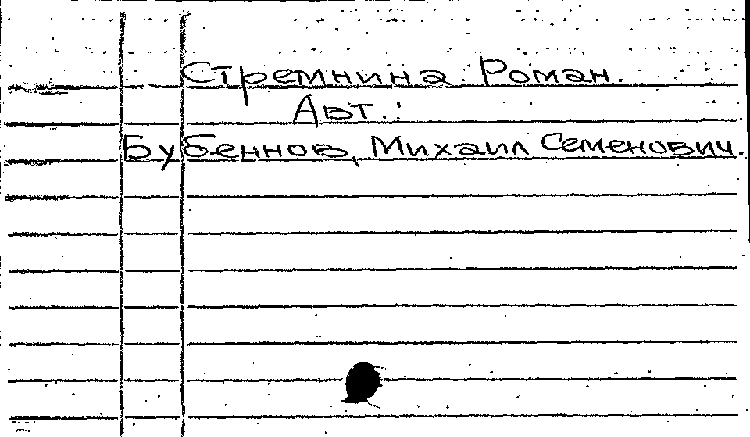 Стремнина. Роман.
Авт.:
Бубеннов, Михаил Семенович.